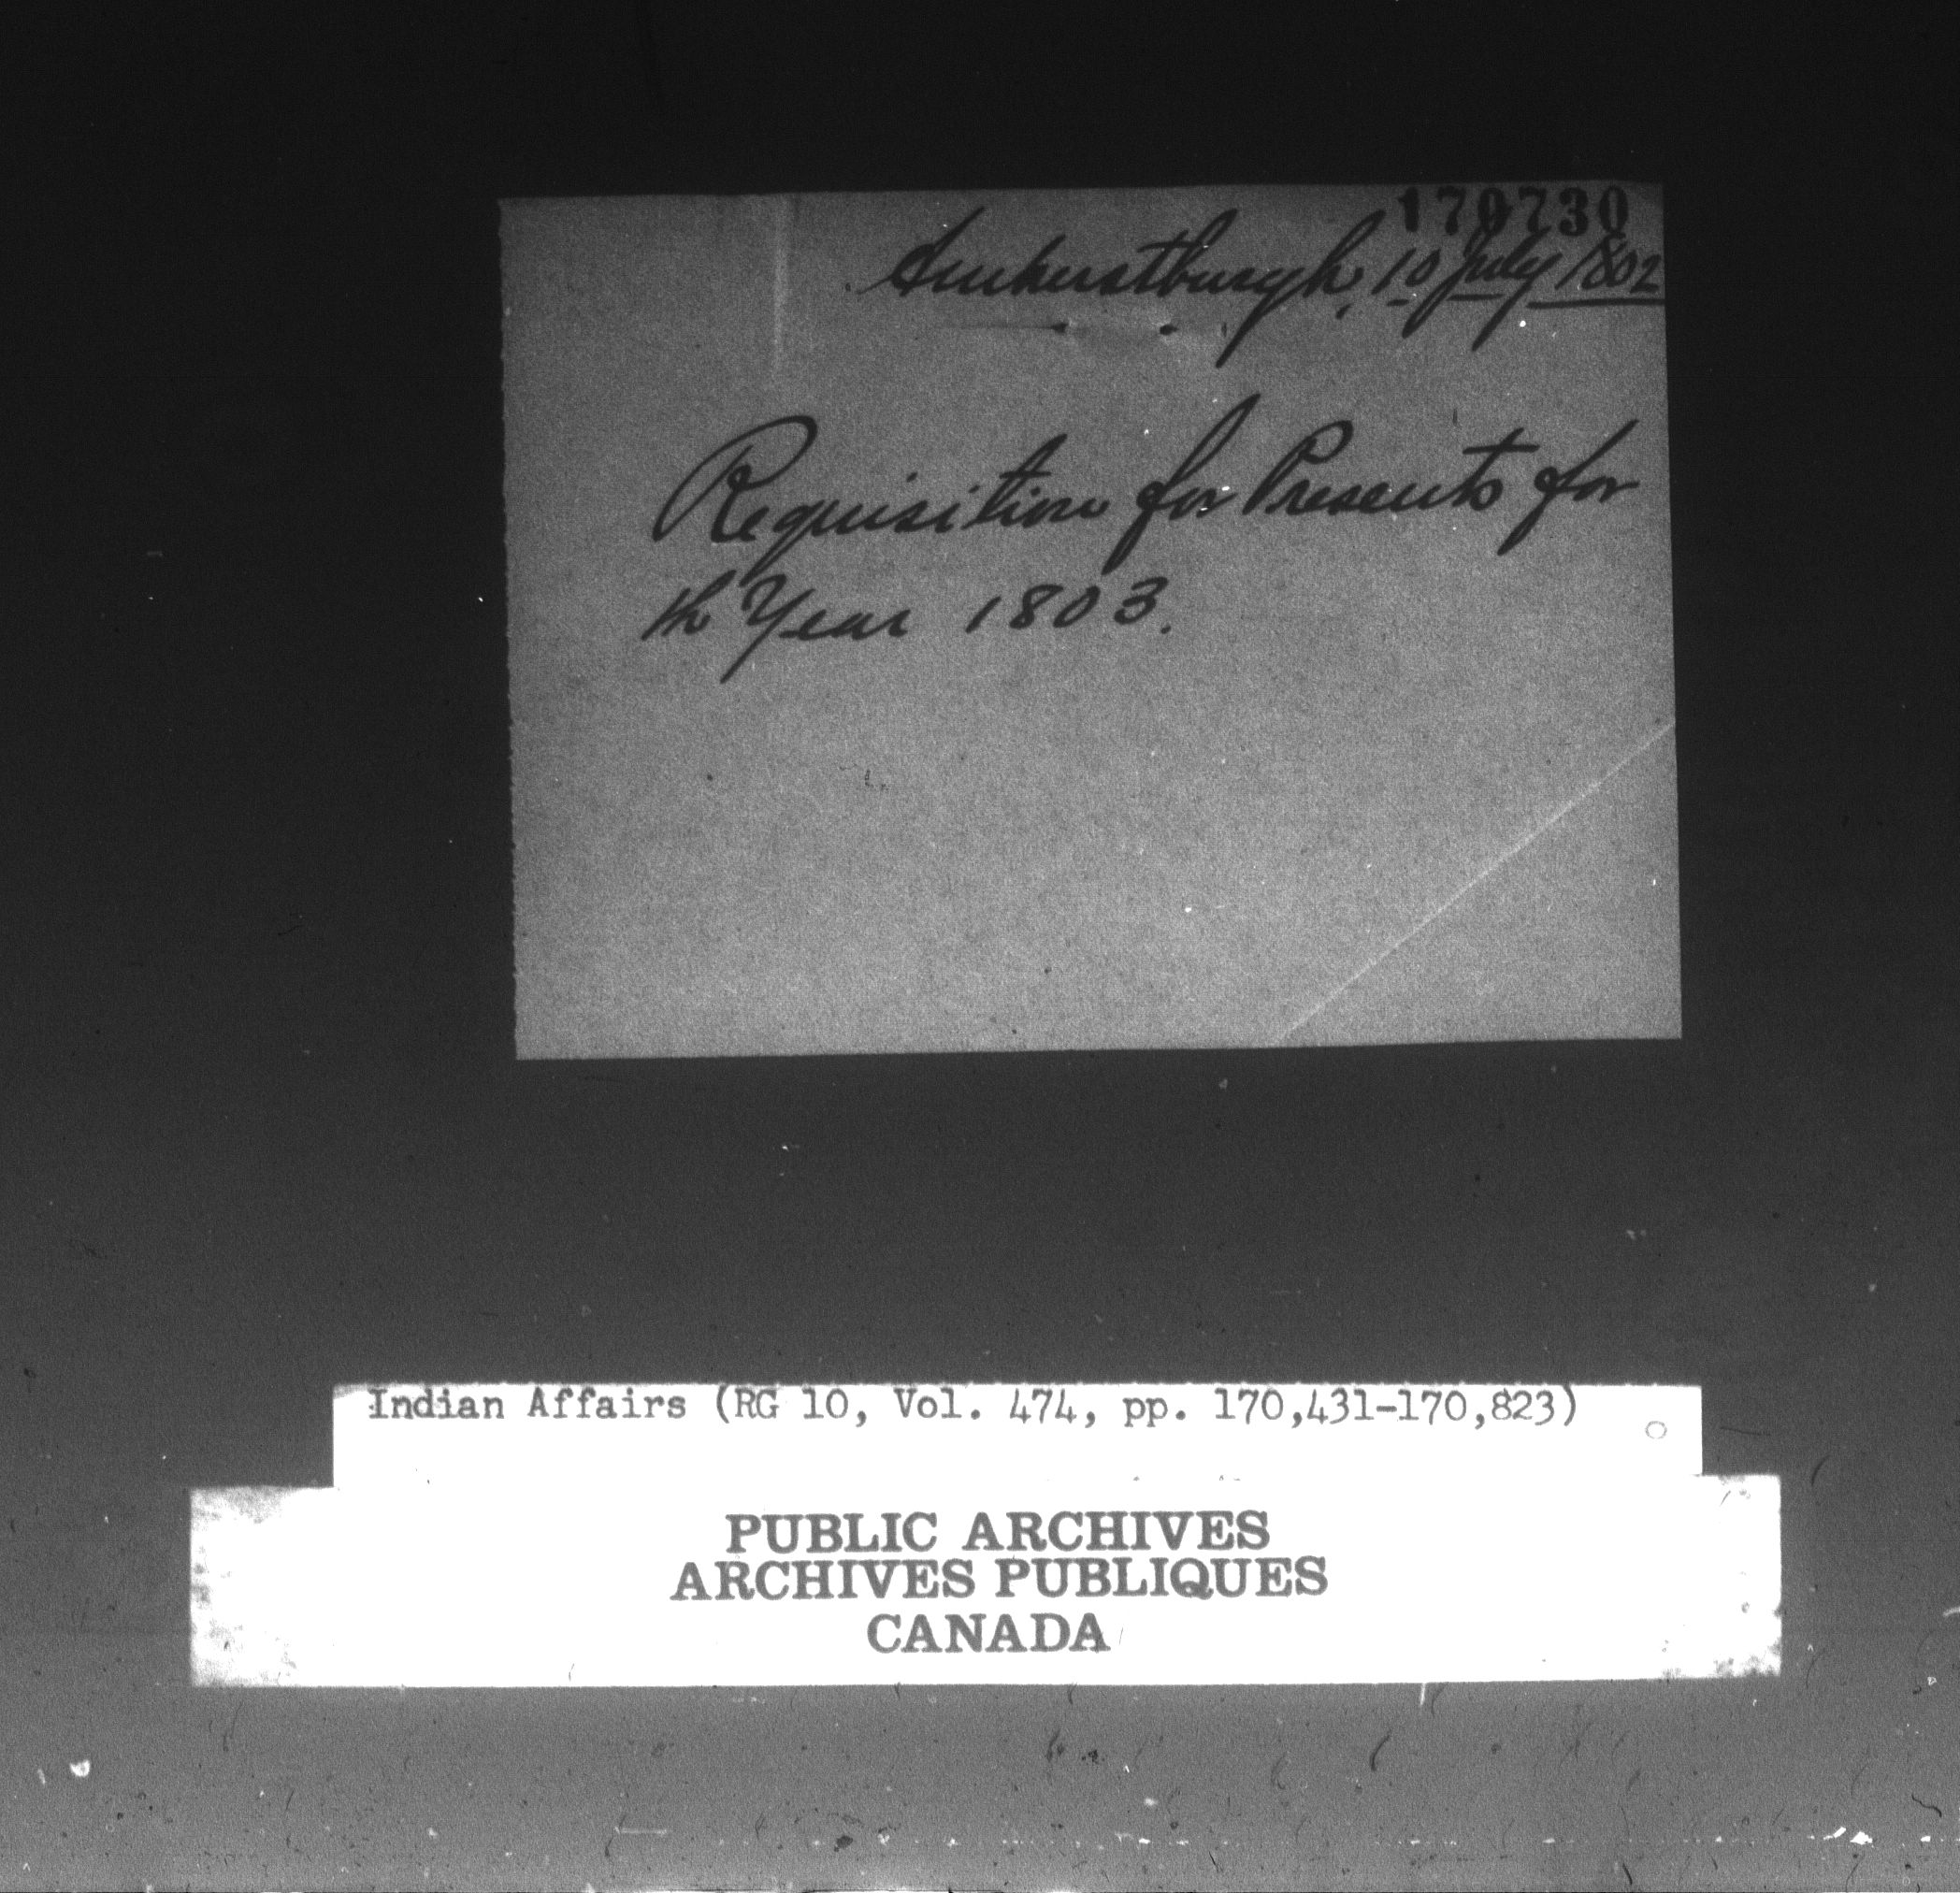 170730
Amherstburgh, 10 July 1802
Requisition for Presents for
th Year 1803.
Indian Affairs (RG 10, Vol. 474, pp. 170,431-170,823)
PUBLIC ARCHIVES
ARCHIVES PUBLIQUES
CANADA